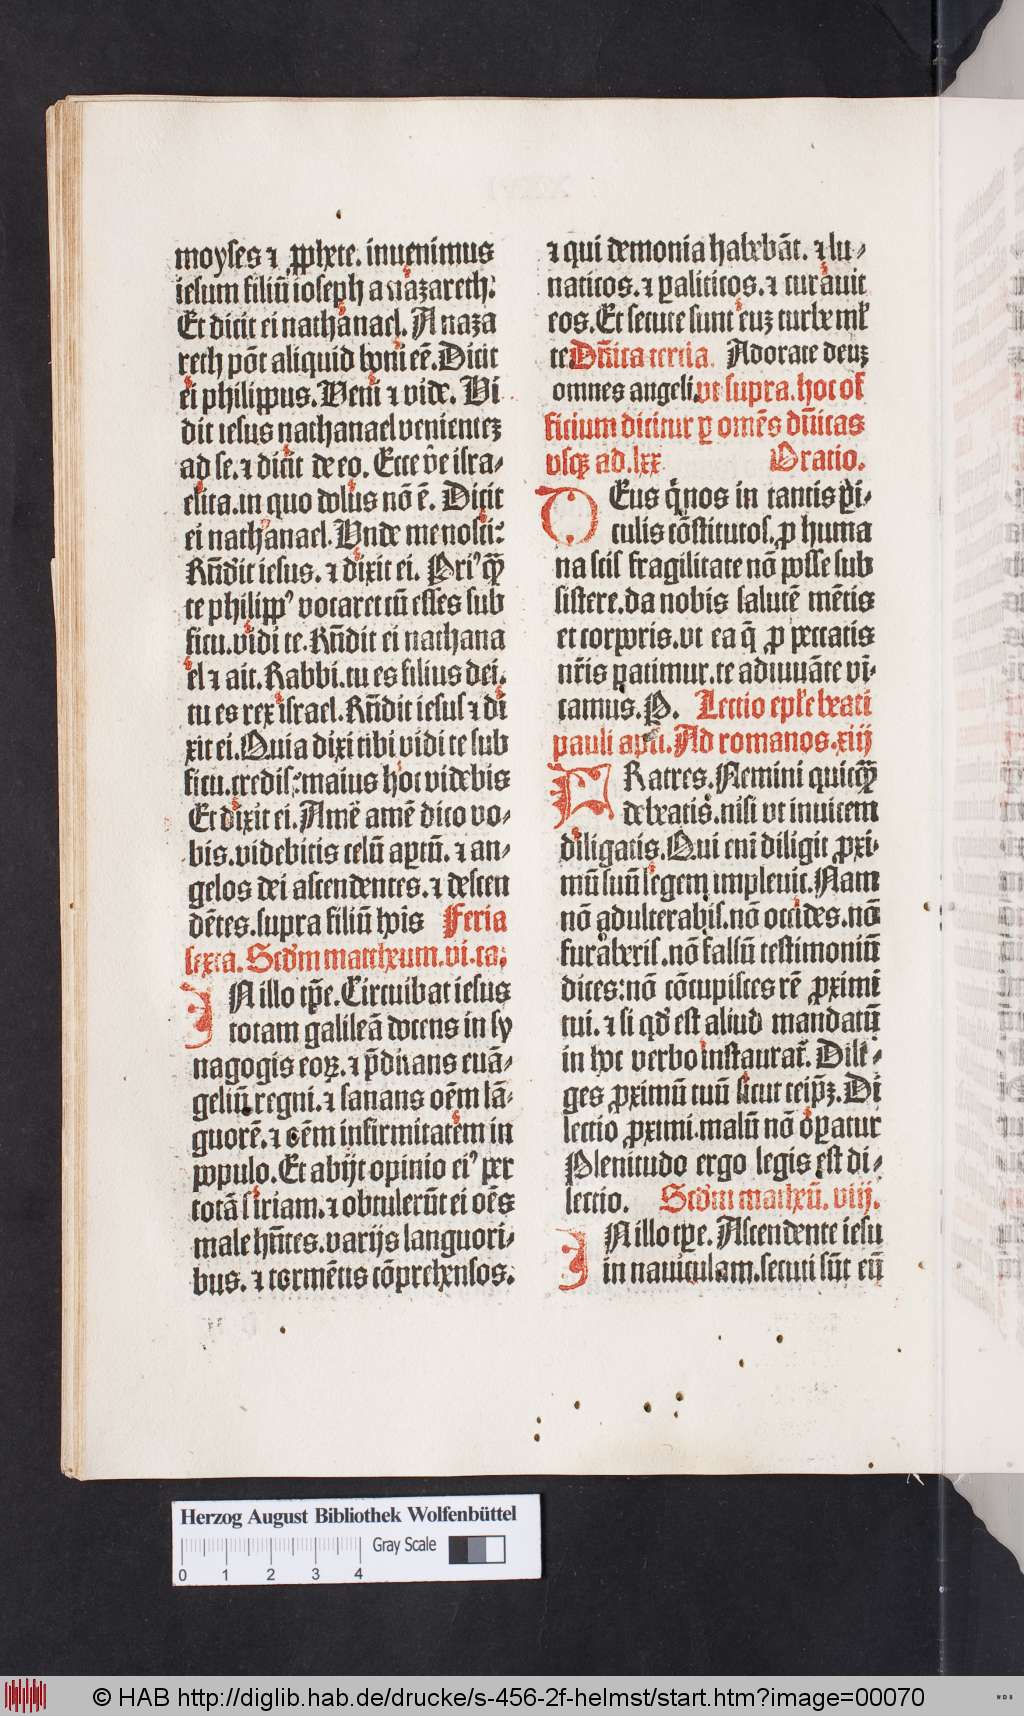 moyses ⁊ ꝓphete. inuenimus
iesum filiū ioseph a nazareth:
Et dicit ei nathanael. A naza
reth pōt aliquid boni eē. Dicit
ei philippus. Veni ⁊ vide. Vi
dit iesus nathanael venienteꝫ
ad se. ⁊ dixit de eo. Ecce v̄e isra⸗
elita. in quo dolus nō ē. Dicit
ei nathanael. Vnde me nosti:
Rn̄dit iesus. ⁊ dixit ei. Priꝰ qͣꝫ
te philippꝰ vocaret cū esses sub
ficu. vidi te. Rn̄dit ei nathana
el ⁊ ait. Rabbi. tu es filius dei.
tu es rex israel. Rn̄dit iesus ⁊ di
xit ei. Quia dixi tibi vidi te sub
ficu. credis: maius hoc videbis
Et dixit ei. Amē amē dico vo⸗
bis. videbitis celū aꝑtū. ⁊ an⸗
gelos dei ascendentes. ⁊ descen
dētes. supra filiū hois Feria
sexta. Scdm mattheum. vi. ca:
IN illo tꝑe. Circuibat iesus
totam galileā docens in sy
nagogis eoꝝ. ⁊ p̄dicans euā⸗
geliū regni. ⁊ sanans oēm lā⸗
guorē. ⁊ oēm infirmitatem in
populo. Et abijt opinio eiꝰ per
totā siriam. ⁊ obtulerūt ei oēs
male hn̄tes. varijs languori⸗
bus. ⁊ tormētis cōprehensos.
⁊ qui demonia habebāt. ⁊ lu⸗
naticos. ⁊ ꝑaliticos. ⁊ curauit
eos. Et secute sunt euꝫ turbe ml̄
te Dn̄ica tercia. Adorate deuꝫ
omnes angeli. vt supra. hoc of
ficium dicitur ꝑ omēs dn̄icas
vsqꝫ ad .lxx Oratio.
DEus q̄ nos in tantis ꝑi⸗
culis cōstitutos. ꝓ huma
na scis fragilitate nō posse sub
sistere. da nobis salutē mētis
et corporis. vt ea q̄ ꝓ peccatis
nr̄is patimur. te adiuuāte vī⸗
camus. P. Lectio ep̄le beati
pauli apl̄i. Ad romanos. xiij
FRatres. Nemini quicqͣꝫ
debeatis. nisi vt inuicem
diligatis. Qui eni diligit ꝓxi⸗
mū suū legem impleuit. Nam
nō adulterabis. nō occides. nō
furaberis. nō falsū testimoniū
dices: nō cōcupisces rē ꝓximi
tui. ⁊ si qd̄ est aliud mandatū
in hoc verbo instaurat̄. Dili⸗
ges ꝓximū tuū sicut teip̄ꝫ. Di
lectio ꝓximi. malū nō oꝑatur
Plenitudo ergo legis est di⸗
lectio. Scdm matheū. viij.
IN illo tꝑe. Ascendente iesu
in nauiculam. secuti sūt eū
Herzog August Bibliothek Wolfenbüttel
Gray Scale
0 1 2 3 4
© HAB http://diglib.hab.de/drucke/s-456-2f-helmst/start.htm?image=00070